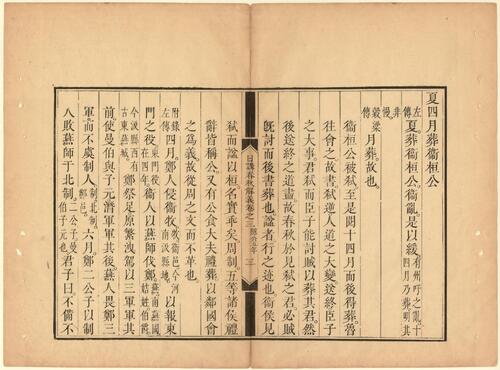 夏四月葬衞桓公
左傳夏葬衞桓公衞亂是以緩有州吁之亂十四月乃葬明其非慢
穀梁傳月葬故也
衞桓公被弑至是閱十四月而後得葬魯
往會之故書弑逆人道之大變送終臣子
之大事君弑而臣子能討賊以葬其君然
後送終之道盡故春秋於見弑之君必賊
旣討而後書葬也諡者行之迹也衞侯見
日講春秋解義卷之三 隱公五年 三
弑而諡以桓名實乖矣周制五等諸侯禮
辭皆稱公又有公食大夫禮葬以鄰國會
之爲義故從周之文而不革
附錄左傳四月鄭人侵衞牧牧衞邑今河南汲縣地以報東
門之役東門役在四年衞人以燕師伐鄭燕南燕國姞姓伯爵
今汲縣西有古東燕城鄭祭足原繁洩駕以三軍軍其
前使曼伯與子元潛軍軍其後燕人畏鄭三
軍而不虞制人制北制鄭邑六月鄭二公子以制
人敗燕師于北制二公子曼伯子元也君子曰不備不